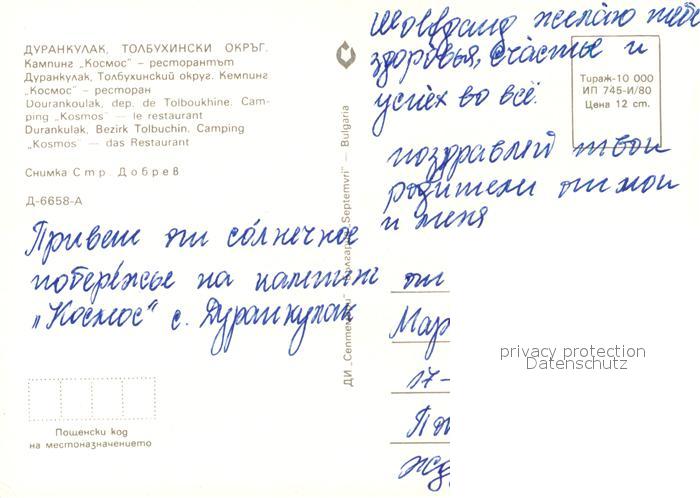 ДУРАНКУЛАК, ТОЛБУХИНСКИ ОКРЪГ.
Кампинг „Космос" – ресторантът
Дуранкулак, Толбухинский округ. Кемпинг
„Космос" – ресторан
Dourankoulak, dep. de Tolboukhine. Cam-
ping „Kosmos" — le restaurant
Durankulak, Bezirk Tolbuchin. Camping
„Kosmos" — das Restaurant
Снимка Стр. Добрев
Д-6658-А
Привет от со́лнечное
побере́жье на кампинг
„Космос" с. Дуранкулак
Пощенски код
на местоназначението
ДИ „Септември" Bulgaria
Тираж-10 000
ИП 745-И/80
Цена 12 ст.
Шолфганг желаю тебе
здоро́вья, сча́стье и
успех во всё.
поздравляй твои
родители от мои
и меня
от
Мар
17-
privacy protection
Datenschutz